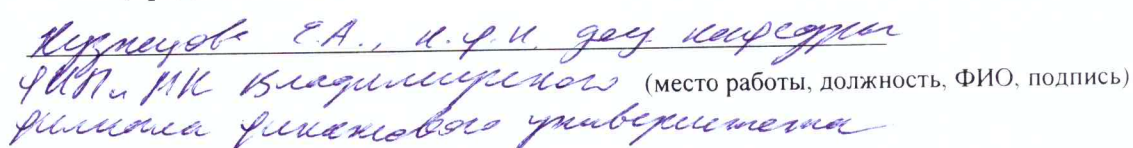 Кузнецова Е.А., к.ф.н. доц. кафедры
ФИПиМК Владимирского (место работы, должность, ФИО, подпись)
филиала финансового университета